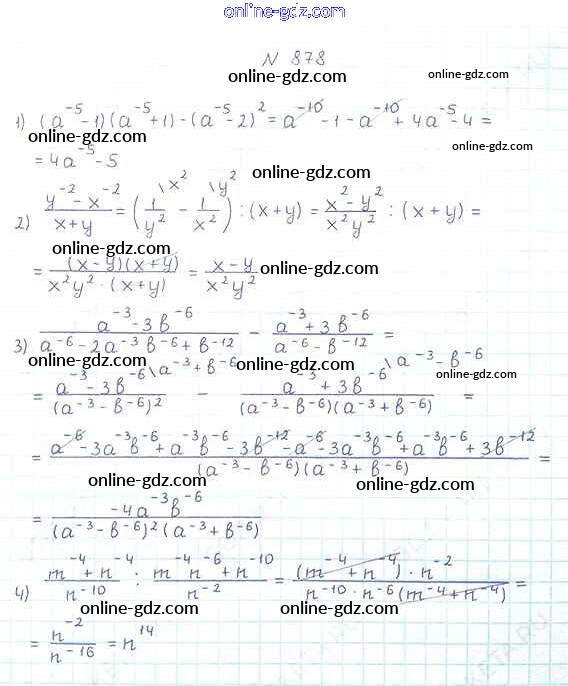 online-gdz.com
N 878
online-gdz.com online-gdz.com
1) (a⁻⁵-1)(a⁻⁵+1)-(a⁻⁵-2)² = a⁻¹⁰-1-a⁻¹⁰+4a⁻⁵-4 =
online-gdz.com online-gdz.com
= 4a⁻⁵-5 online-gdz.com
2) (y⁻²-x⁻²)/(x+y) = (1/y² \x² - 1/x² \y²) : (x+y) = (x²-y²)/(x²y²) : (x+y) =
online-gdz.com online-gdz.com
= ((x-y)(x+y))/(x²y²·(x+y)) = (x-y)/(x²y²) online-gdz.com
3) (a⁻³-3b⁻⁶)/(a⁻⁶-2a⁻³b⁻⁶+b⁻¹²) - (a⁻³+3b⁻⁶)/(a⁻⁶-b⁻¹²) =
online-gdz.com online-gdz.com online-gdz.com
= (a⁻³-3b⁻⁶ \a⁻³+b⁻⁶)/((a⁻³-b⁻⁶)²) - (a⁻³+3b⁻⁶ \a⁻³-b⁻⁶)/((a⁻³-b⁻⁶)(a⁻³+b⁻⁶)) =
online-gdz.com online-gdz.com
= (a⁻⁶-3a⁻³b⁻⁶+a⁻³b⁻⁶-3b⁻¹²-a⁻⁶-3a⁻³b⁻⁶+a⁻³b⁻⁶+3b⁻¹²)/((a⁻³-b⁻⁶)(a⁻³+b⁻⁶)) =
online-gdz.com online-gdz.com
= (-4a⁻³b⁻⁶)/((a⁻³-b⁻⁶)²(a⁻³+b⁻⁶)) online-gdz.com
online-gdz.com
4) (m⁻⁴+n⁻⁴)/n⁻¹⁰ : (m⁻⁴n⁻⁶+n⁻¹⁰)/n⁻² = ((m⁻⁴+n⁻⁴)·n⁻²)/(n⁻¹⁰·n⁻⁶(m⁻⁴+n⁻⁴)) =
online-gdz.com online-gdz.com
= n⁻²/n⁻¹⁶ = n¹⁴
online-gdz.com online-gdz.com